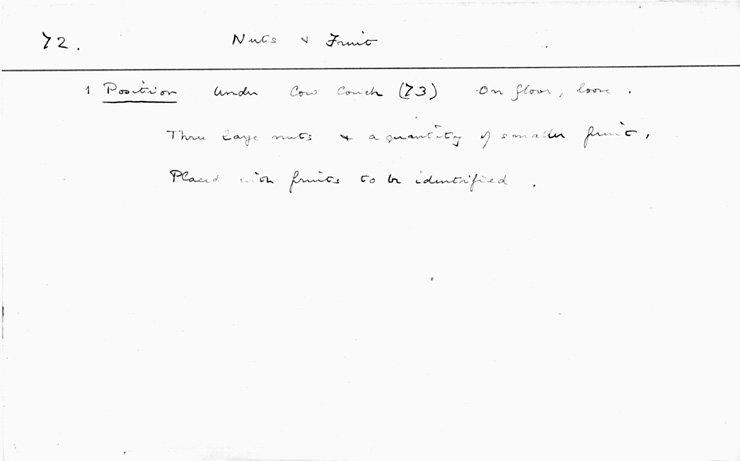 72. Nuts & Fruit
1 Position Under Cow Couch (73) On floor, loose.
Three large nuts & a quantity of smaller fruit.
Placed with fruits to be identified.